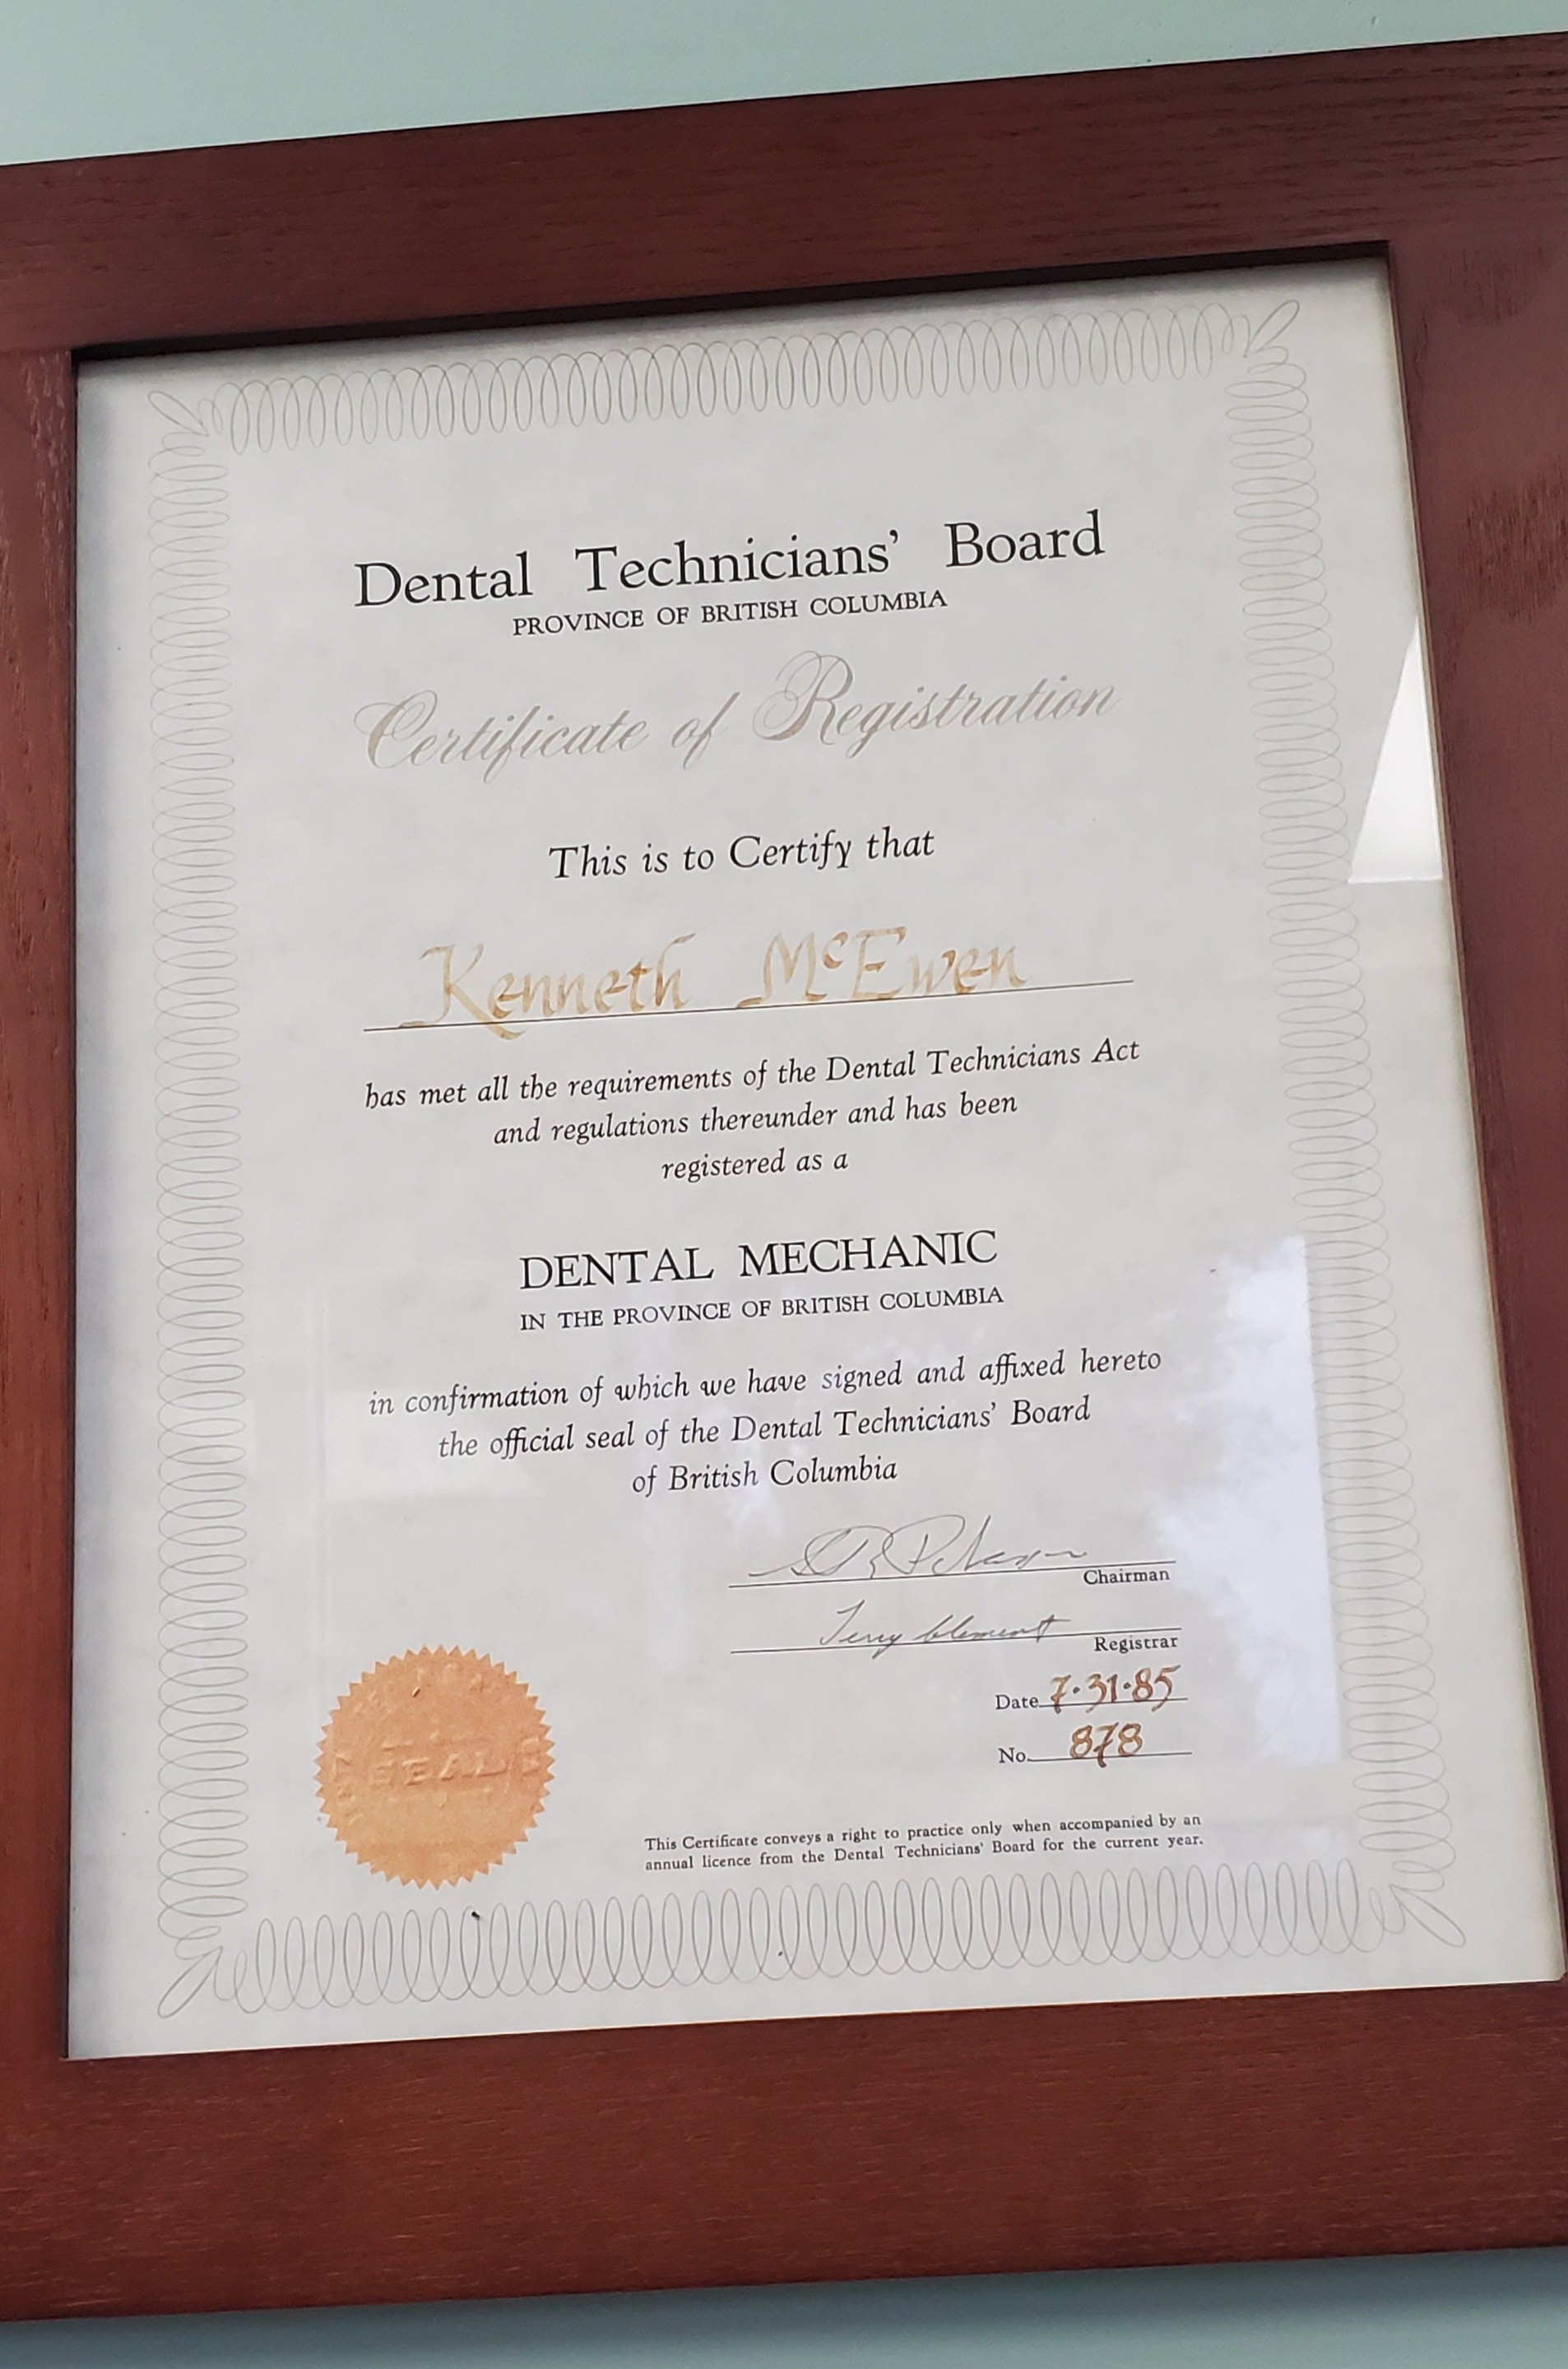 Dental Technicians' Board
PROVINCE OF BRITISH COLUMBIA
Certificate of Registration
This is to Certify that
Kenneth McEwen
has met all the requirements of the Dental Technicians Act
and regulations thereunder and has been
registered as a
DENTAL MECHANIC
IN THE PROVINCE OF BRITISH COLUMBIA
in confirmation of which we have signed and affixed hereto
the official seal of the Dental Technicians' Board
of British Columbia
Chairman
Terry Clement
Registrar
Date 7·31·85
No. 878
SEAL
This Certificate conveys a right to practice only when accompanied by an
annual licence from the Dental Technicians' Board for the current year.